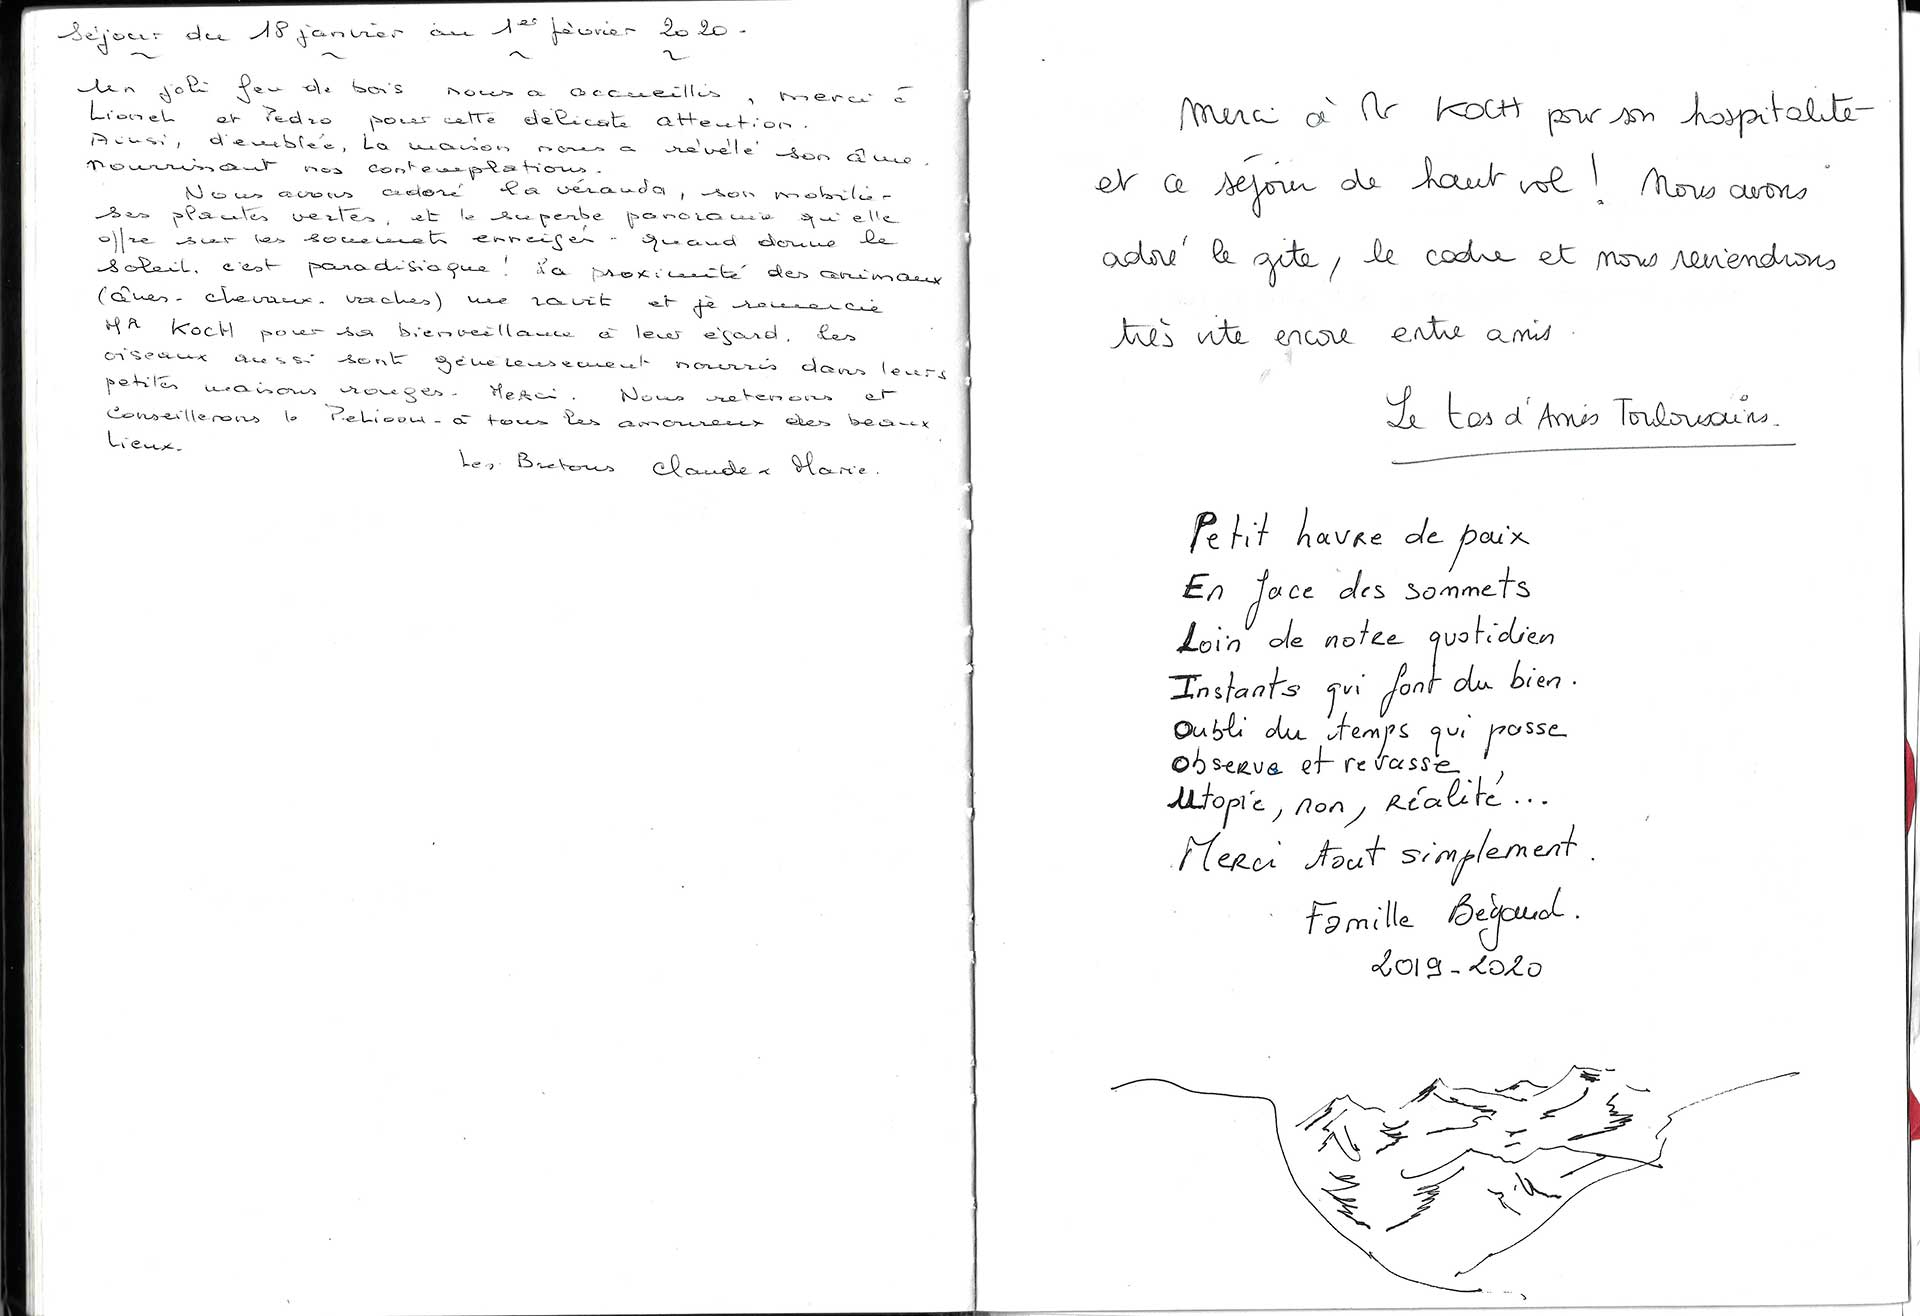 Séjour du 18 janvier au 1er février 2020.
Un joli feu de bois nous a accueillis, merci à
Lionel et Pedro pour cette délicate attention.
Ainsi, d'emblée, la maison nous a révélé son âme.
nourrissant nos contemplations.
Nous avons adoré la véranda, son mobilier
ses plantes vertes, et le superbe panorama qu'elle
offre sur les sommets enneigés. Quand donne le
soleil, c'est paradisiaque! La proximité des animaux
(ânes, chevaux, vaches) me ravit et je remercie
MR KOCH pour sa bienveillance à leur égard. Les
oiseaux aussi sont généreusement nourris dans leurs
petites maisons rouges. Merci. Nous retenons et
Conseillerons le à tous les amoureux des beaux
lieux.
Les Bretons Claude & Marie.
Merci à Mr KOCH pour son hospitalité
et ce séjour de haut vol! Nous avons
adoré le gîte, le cadre et nous reviendrons
très vite encore entre amis.
Le tas d'Amis Toulousains.
Petit havre de paix
En face des sommets
Loin de notre quotidien
Instants qui font du bien.
Oubli du temps qui passe
Observe et revasse
Utopie, non, réalité...
Merci tout simplement.
Famille Bégaud.
2019-2020